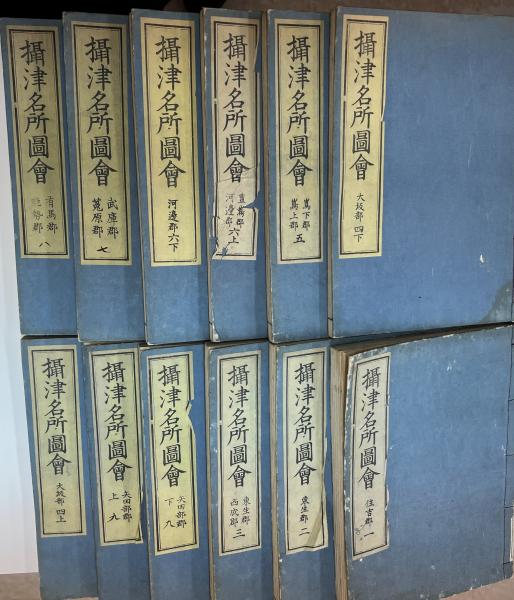 攝津名所圖會
大坂部 四下
攝津名所圖會
嶌下郡
嶌上郡 五
攝津名所圖會
豊嶌郡
河邊郡 六上
攝津名所圖會
河邊郡 六下
攝津名所圖會
武庫郡
菟原郡 七
攝津名所圖會
有馬郡
能勢郡 八
攝津名所圖會
住吉郡 一
攝津名所圖會
東生郡 二
攝津名所圖會
東生郡
西成郡 三
攝津名所圖會
矢田部郡
下 九
攝津名所圖會
矢田部郡
上 九
攝津名所圖會
大坂部 四上